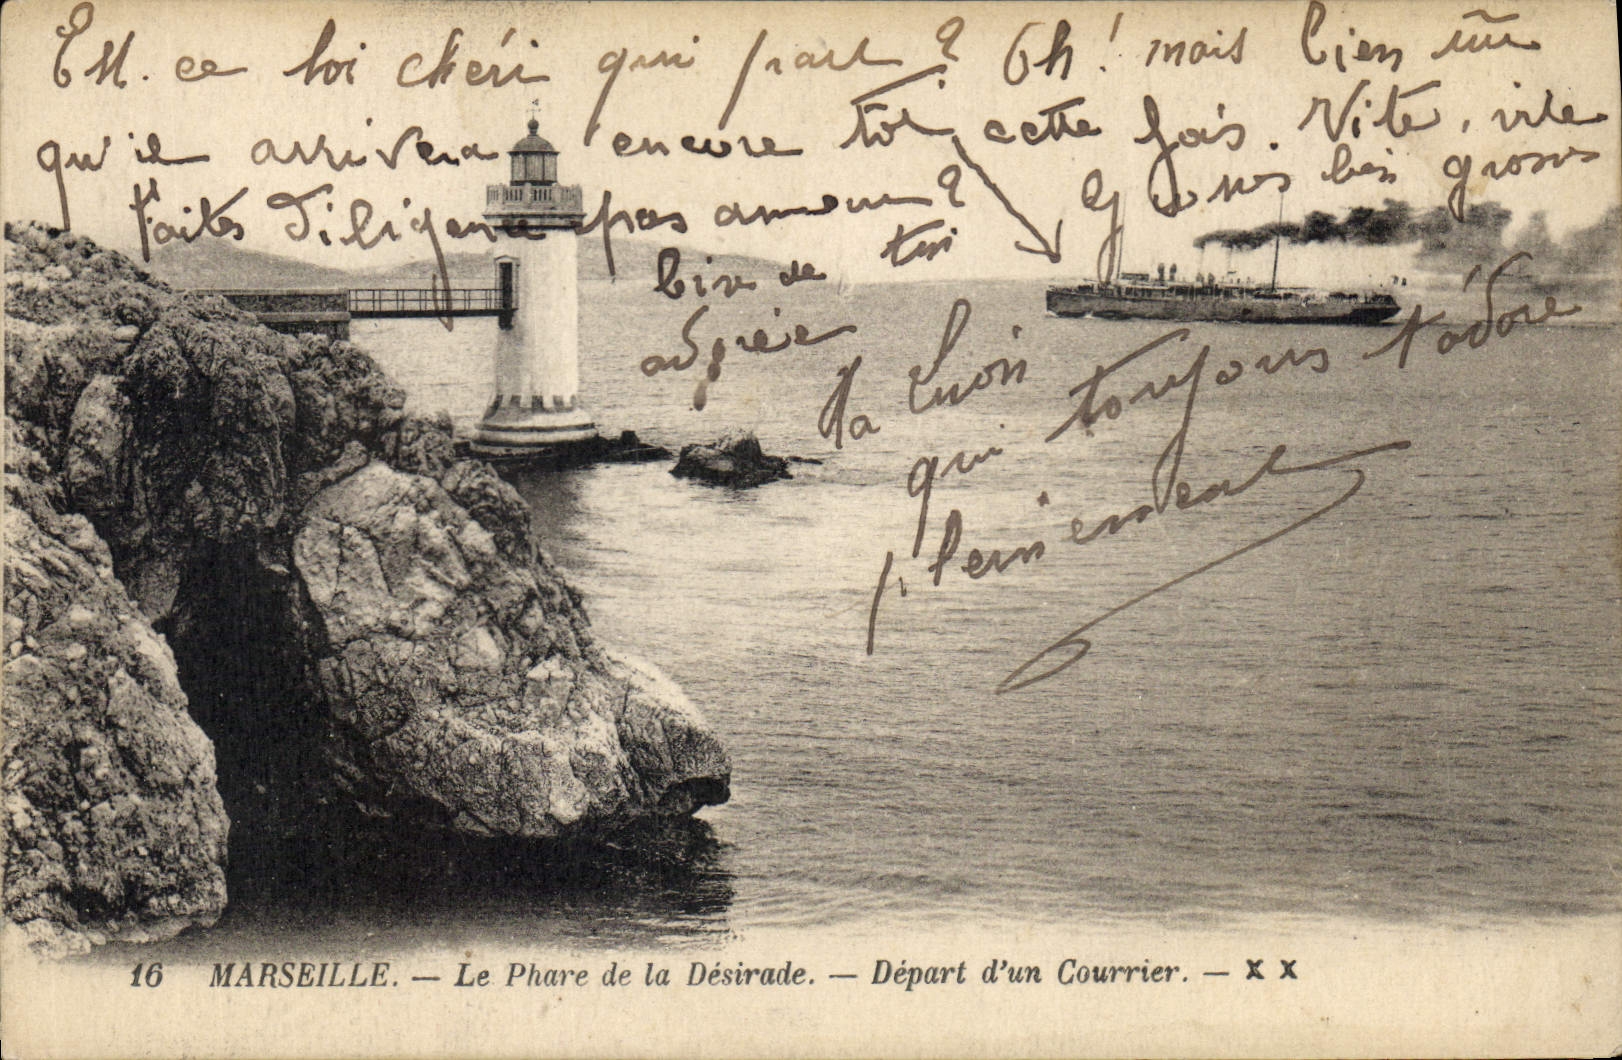 Est. ce toi chéri qui part ? Oh ! mais bien sûr
qu'il arrivera encore tôt cette fois. Vite, vite
faites diligence pas amour ?
bons bien grosses
bise de toi
adorée
Ta
qui toujours t'adore
pleinement
16 MARSEILLE. — Le Phare de la Désirade. — Départ d'un Courrier. — X X